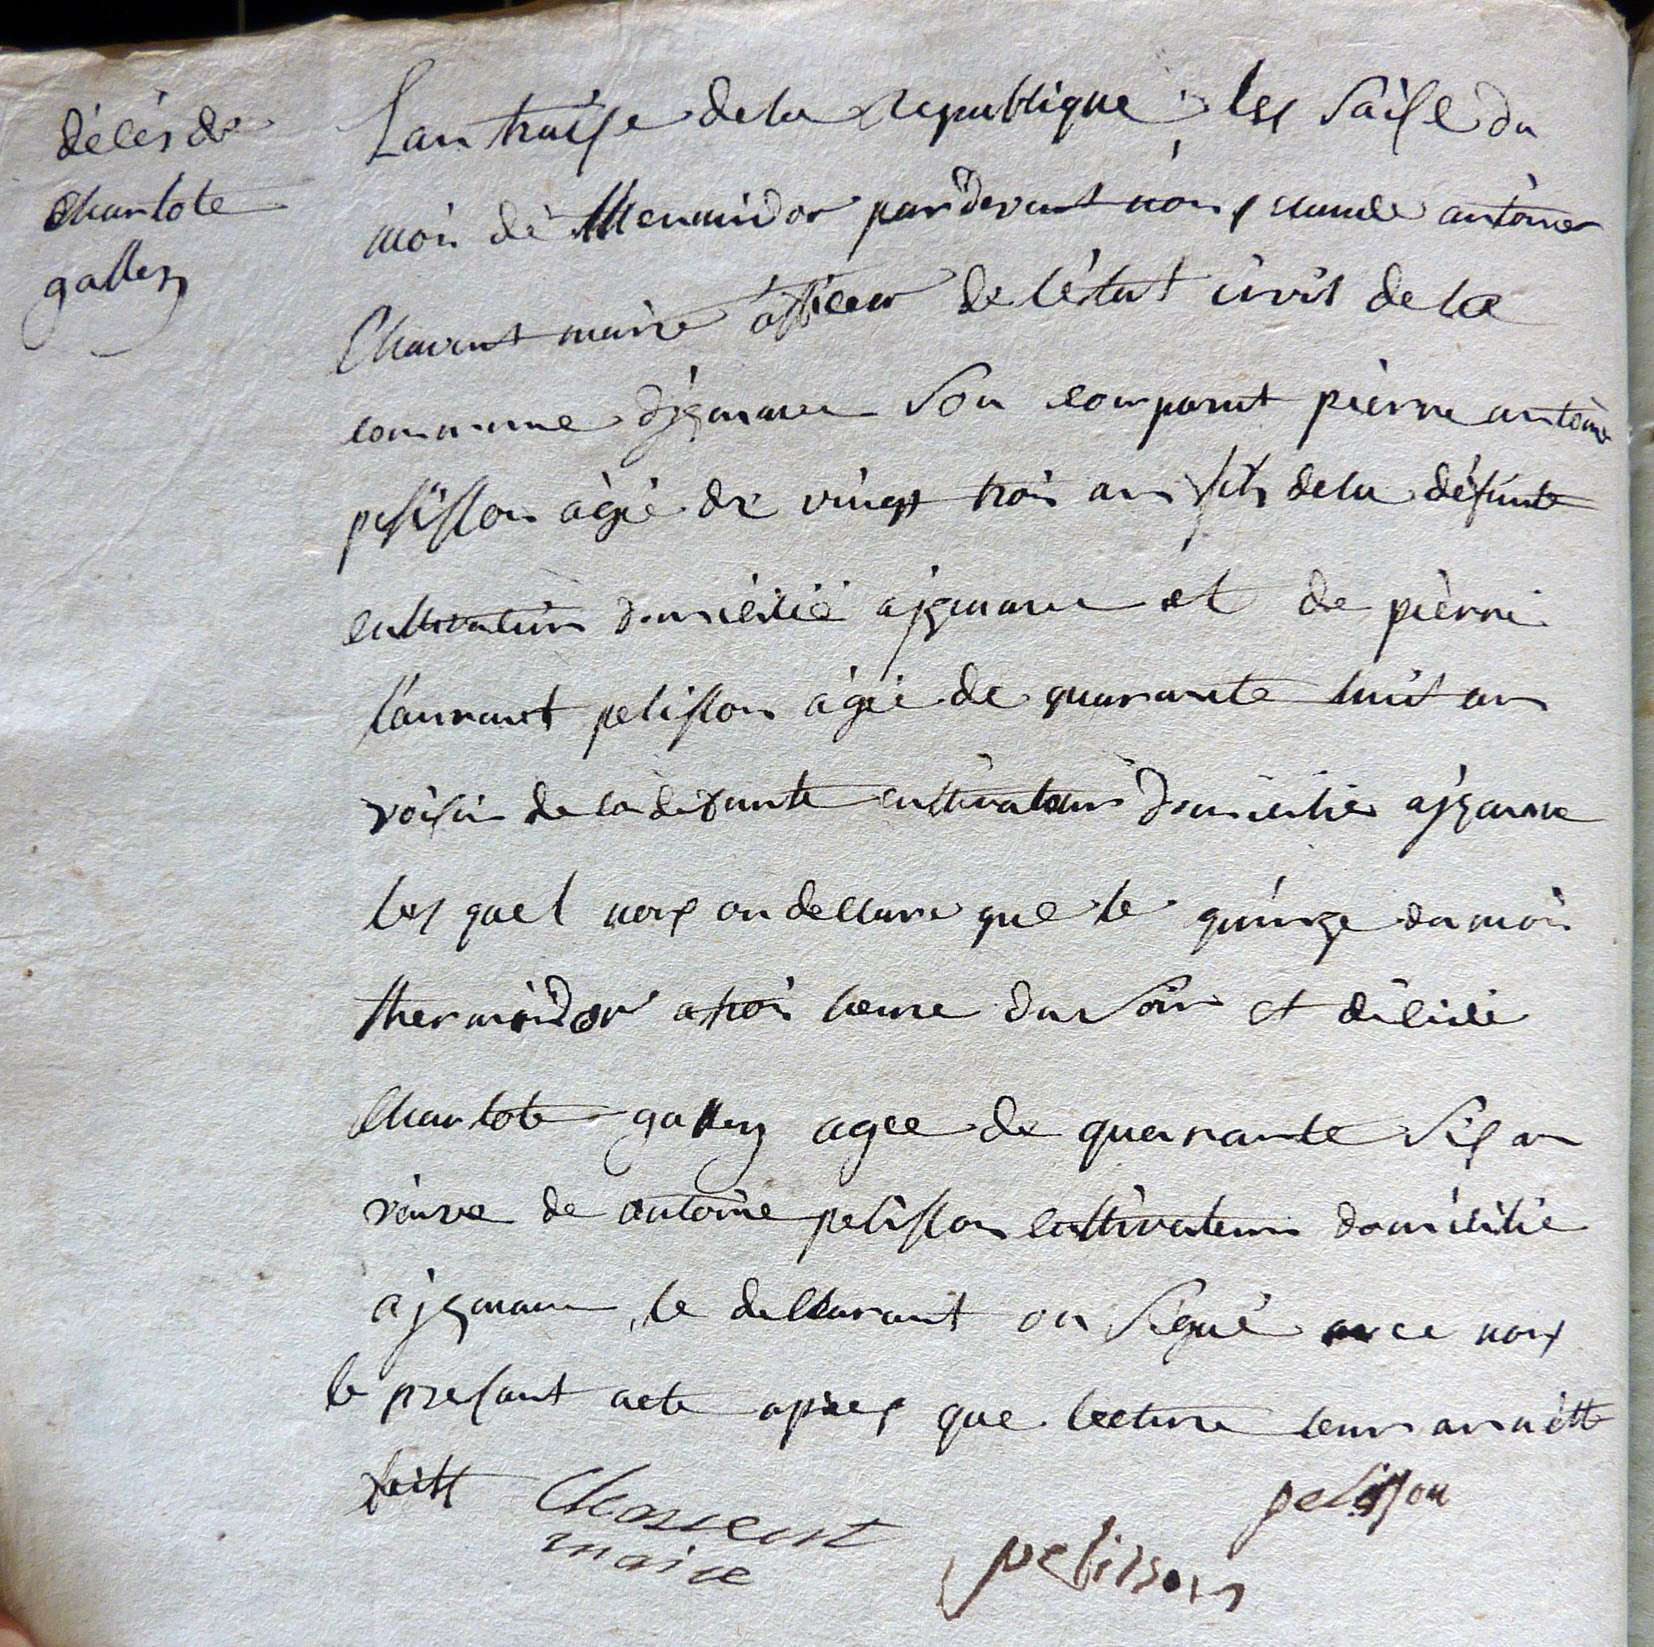 décès de
Charlote
galley
Lan traise de la republique les saise du
mois de thermidor pardevant nous claude antoine
Chavent maire officier de létat civil de la
commune dizernore son comparut pierre antoine
pelisson agié de vingt trois an fils de la défunte
cultivateur domicilié a izernore et de pierre
laurant pelisson agié de quarante huit an
voisin de la défunte cultivateur domicilié a izernore
les quel nous on dellaré que le quinze du mois
thermidor a trois heure du soir et décédé
Charlote galley agee de quarante six an
veuve de antoine pelisson cultivateur domicilié
a izernore le dellarant on signé avec nous
le presant acte apres que lecture leur an nétté
faitt
Chavent
maire
pelisson
pelisson